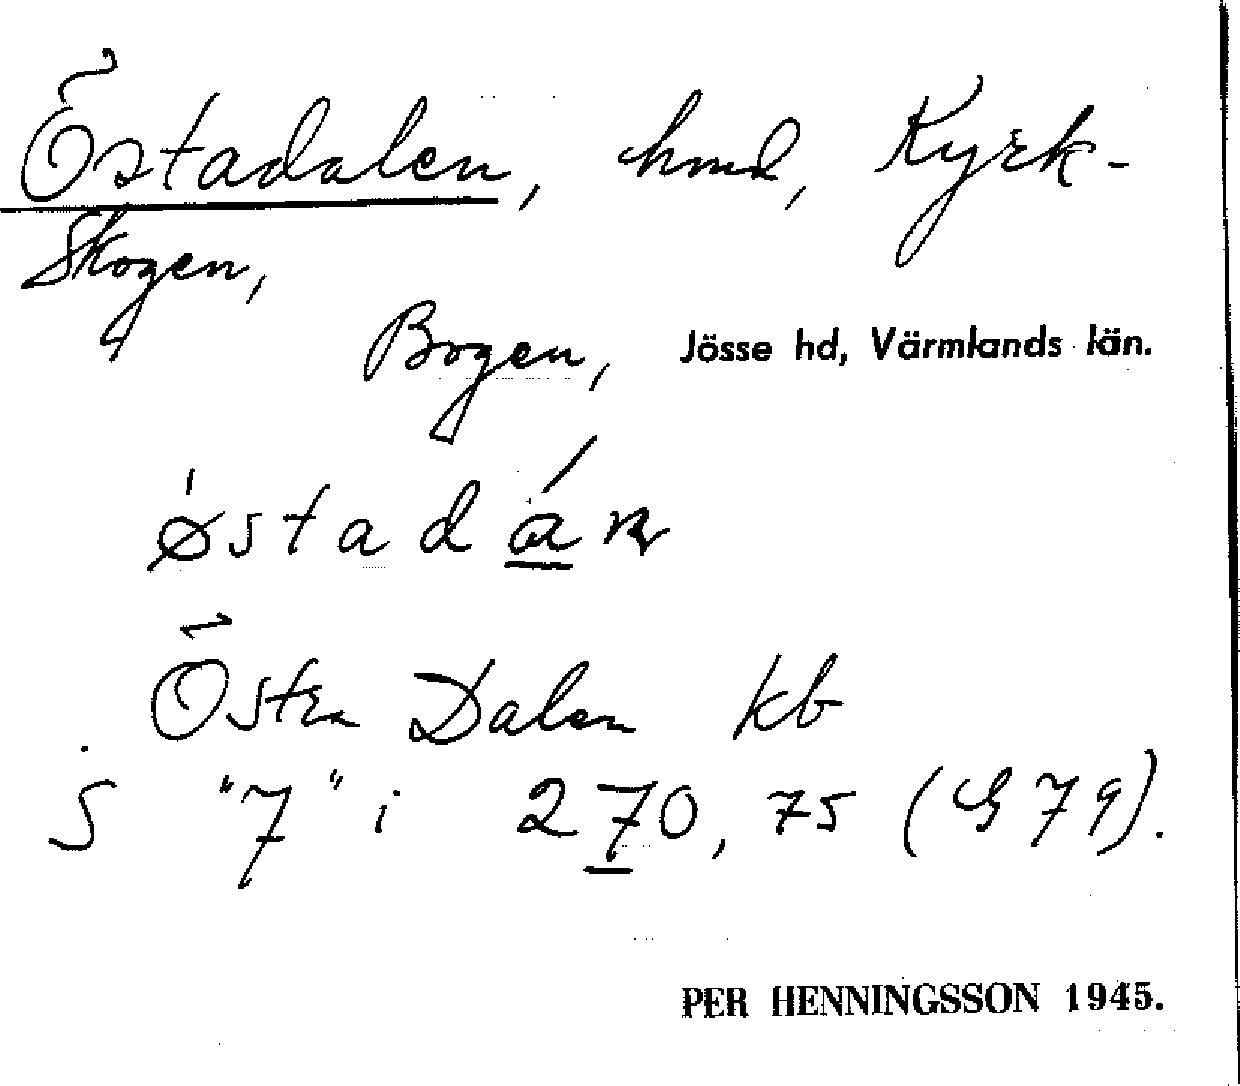 Östadalen, hmd, Kyrk-
skogen,
Bogen, Jösse hd, Värmlands län.
Östra Dalen kb
S "7" i 270, 75 (G 79).
PER HENNINGSSON 1945.